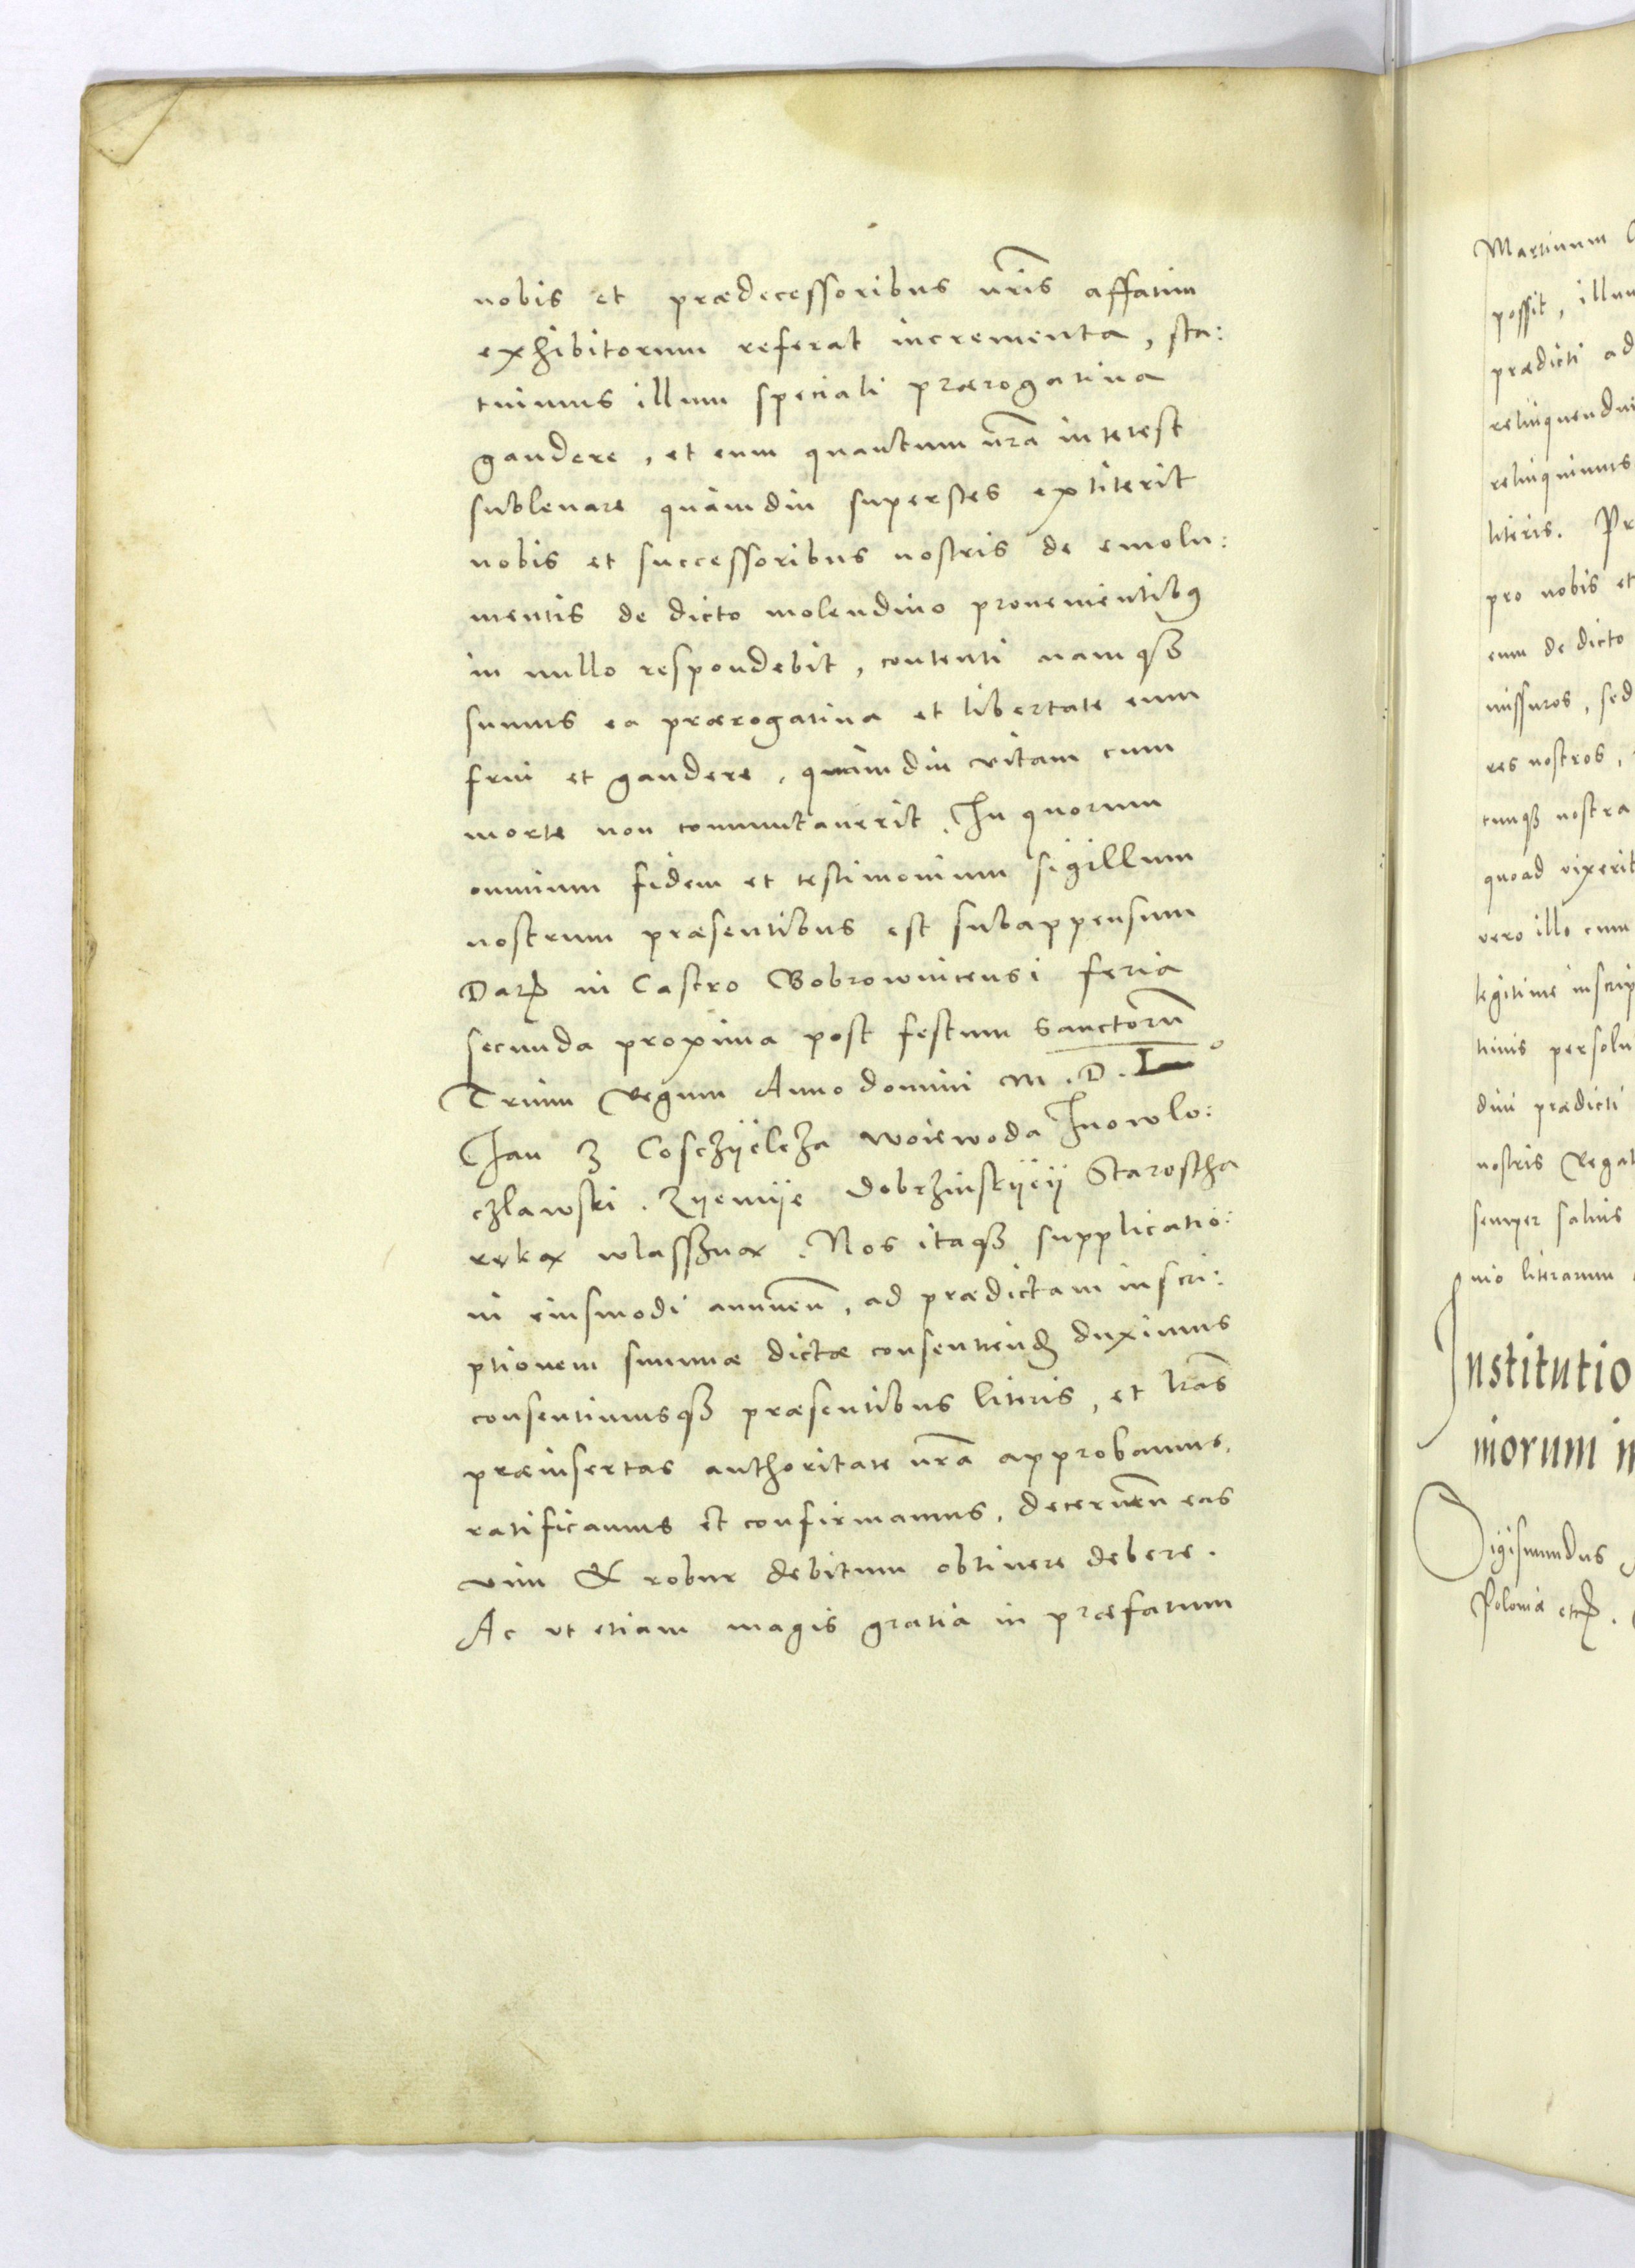 nobis et prædecessoribus nr̃is affatim
exhibitorum referat incrementa, sta:
tuimus illum speciali prærogatiua
gaudere, et eum quantum nr̃a interest
subleuare quàmdiu superstes extiterit
nobis et successoribus nostris de emolu:
mentis de dicto molendino prouenientibus
in nullo respondebit, contenti namq3
sumus ea prærogatiua et libertate eum
frui et gaudere, quàmdiu vitam cum
morte non commutauerit. In quorum
omnium fidem et testimonium sigillum
nostrum præsentibus est subappensum
Datꝭ in Castro Bobrownicensi feria
secunda proxima post festum sanctorũ
Trium Regum Anno domini M.D.L°
Jan z Cosczÿelcza woiewoda Jnowlo:
czlawski. Zÿemÿe Dobrzinskÿeÿ Starostha
ręką wlassną. Nos itaq3 supplicatio:
ni eiusmodi annueñ, ad prædictam inscri:
ptionem summæ dictæ consentiendꝭ duximus
consentimusq3 præsentibus literis, et lr̃as
præinsertas authoritate nr̃a approbamus,
ratificamus et confirmamus, decerneñ eas
vim & robur debitum obtinere debere.
Ac vt etiam magis gratia in præfatum
Martinum
possit, illum
prædicti ad
relinquendum
relinquimus
literis. Pr
pro nobis et
eum de dicto
missuros, sed
res nostros,
cunq3 nostra
quoad vixerit
vero illo cum
legitime inscrip
timis persolu
dini prædicti
nostris Regal
semper saluis
nio literarum
Institutio
morum in
Sigismundus
Poloniæ etcꝭ.